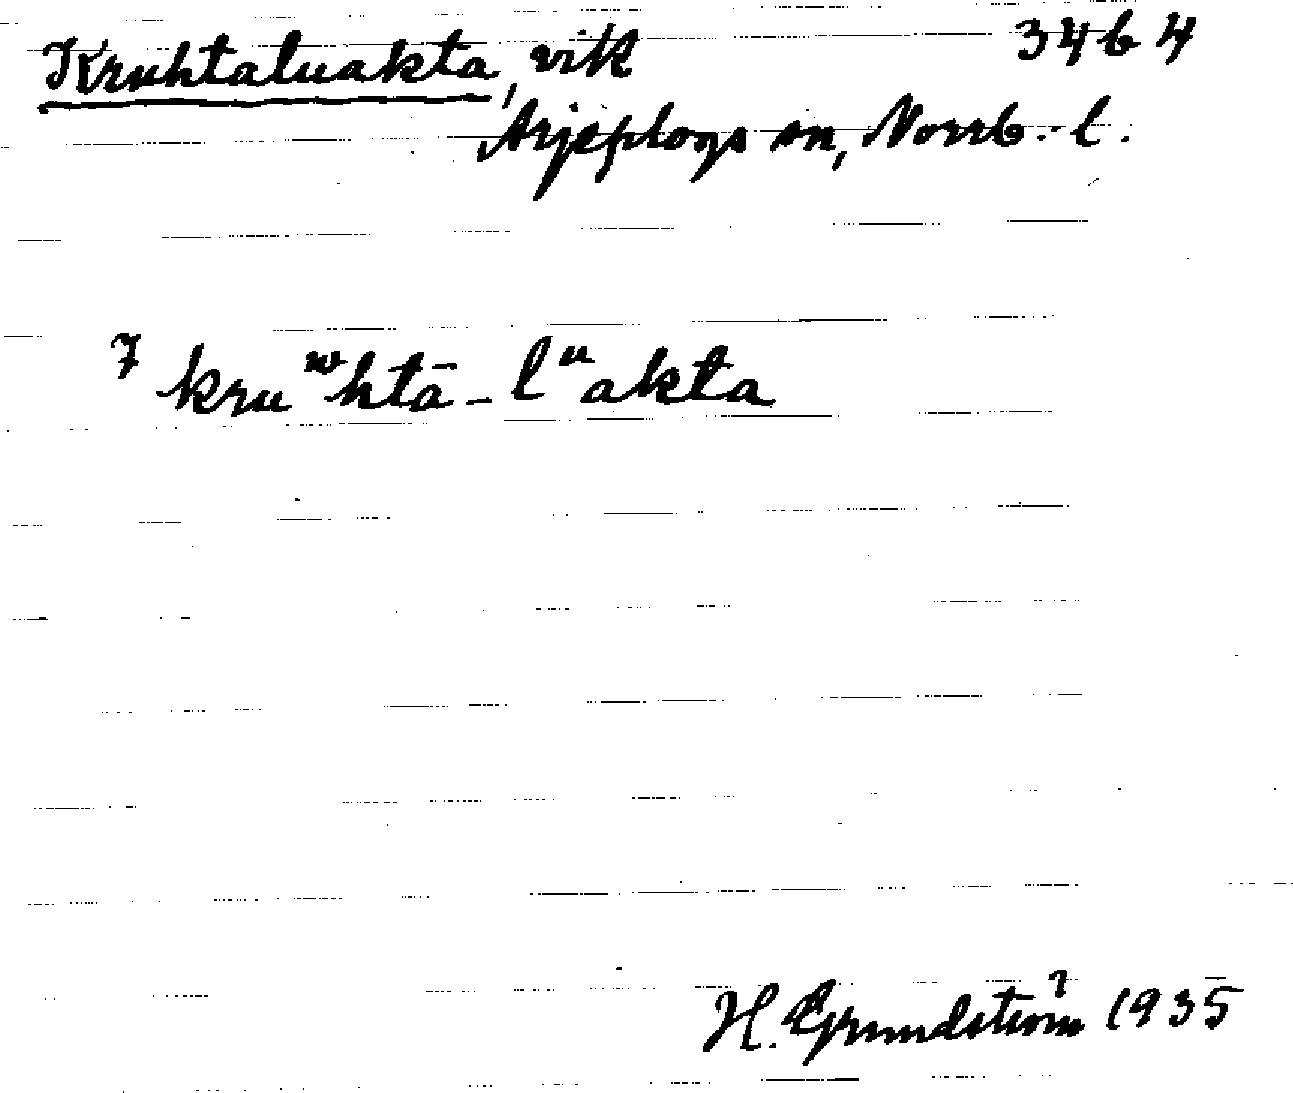 Kruhtaluakta, vik 3464
Arjeplogs sn, Norrb. l.
7 kruʷhtā-lᵘakta
H. Grundström 1935